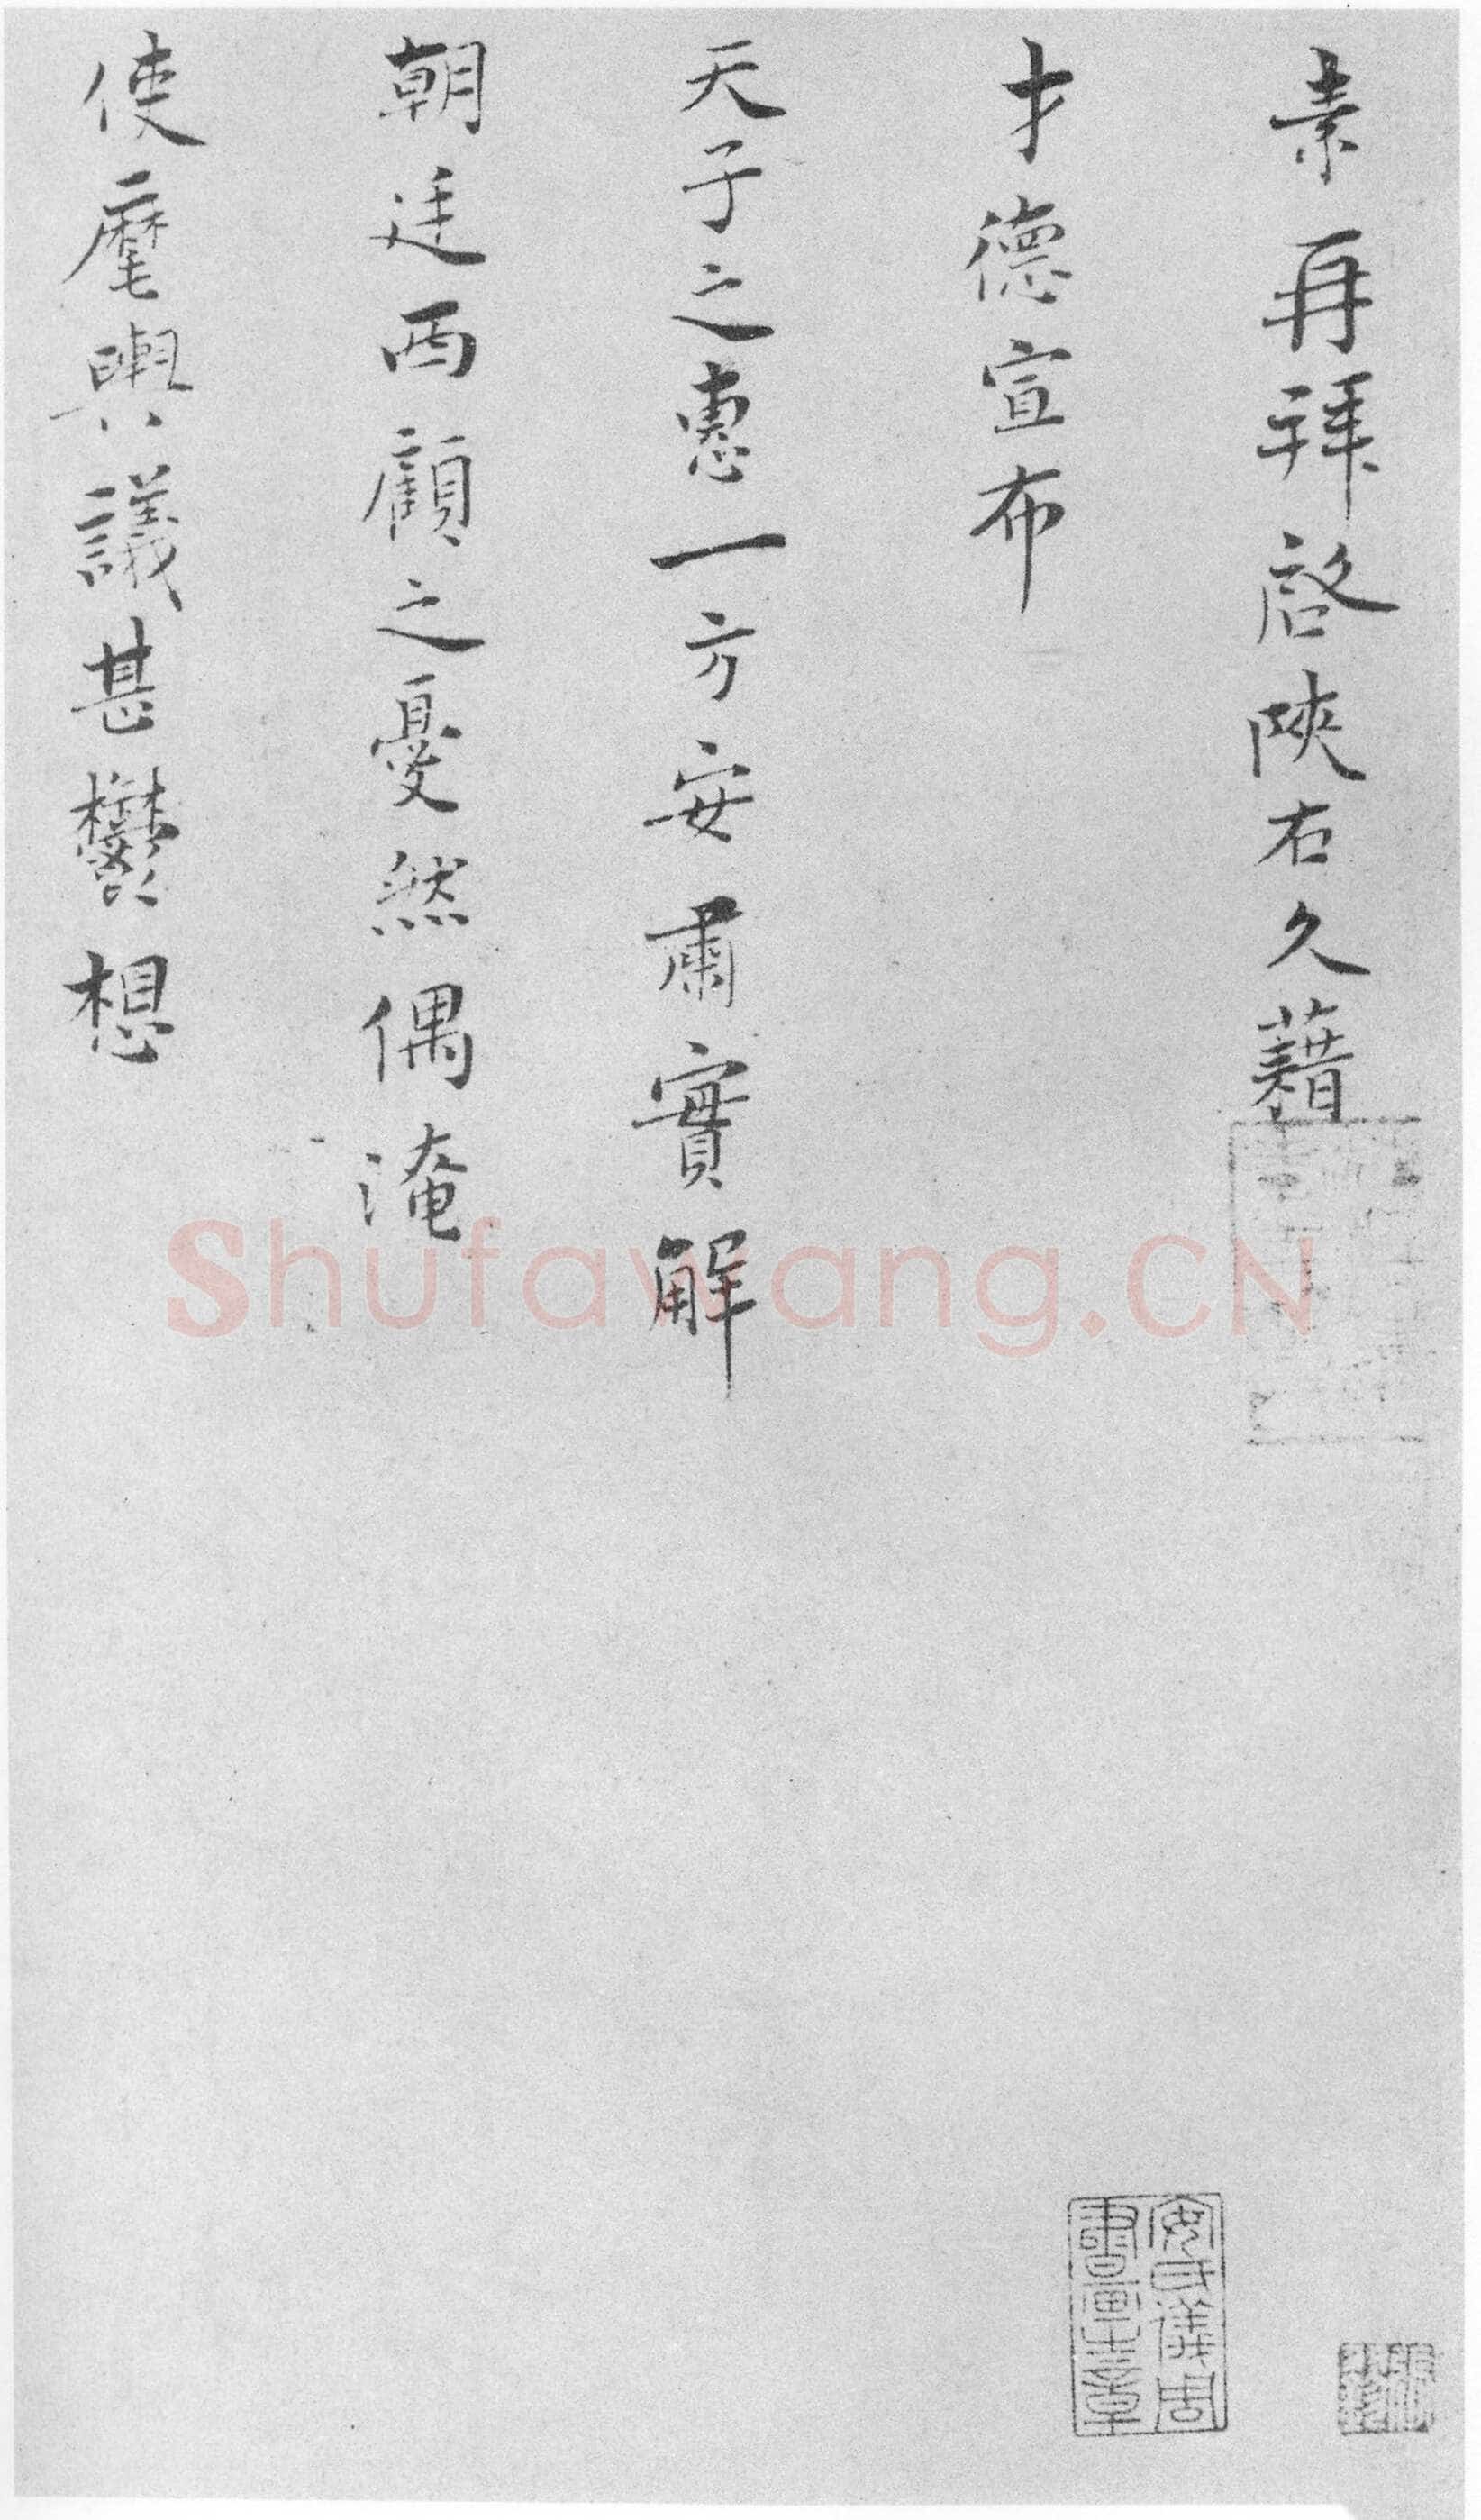 素再拜啓陝右久藉
才德宣布
天子之惠一方安肅實解
朝廷西顧之憂然偶淹
使麾輿議甚鬱想
安氏儀周
書畫之章
Shufawang.CN